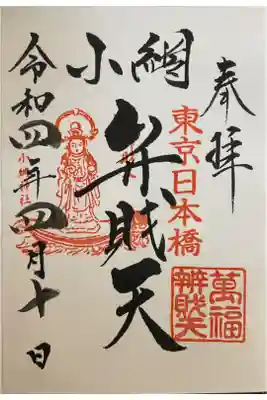 奉拝
東京日本橋
萬福
辨財天
小網
弁財天
令和四年四月十日
小網神社